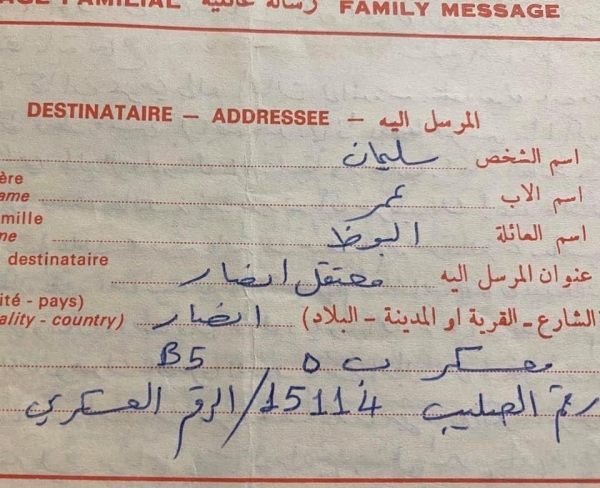 AGE FAMILIAL رسالة عائلية FAMILY MESSAGE
DESTINATAIRE – ADDRESSEE – المرسل اليه
اسم الشخص سليمان
ère
ame اسم الاب عمر
mille
me اسم العائلة البوظ
destinataire عنوان المرسل اليه معتقل انصار
ité - pays)
ality - country) (الشارع - القرية او المدينة - البلاد) انصار
معسكر ب ٥ B5
رقم الصليب 15114 / الرقم العسكري